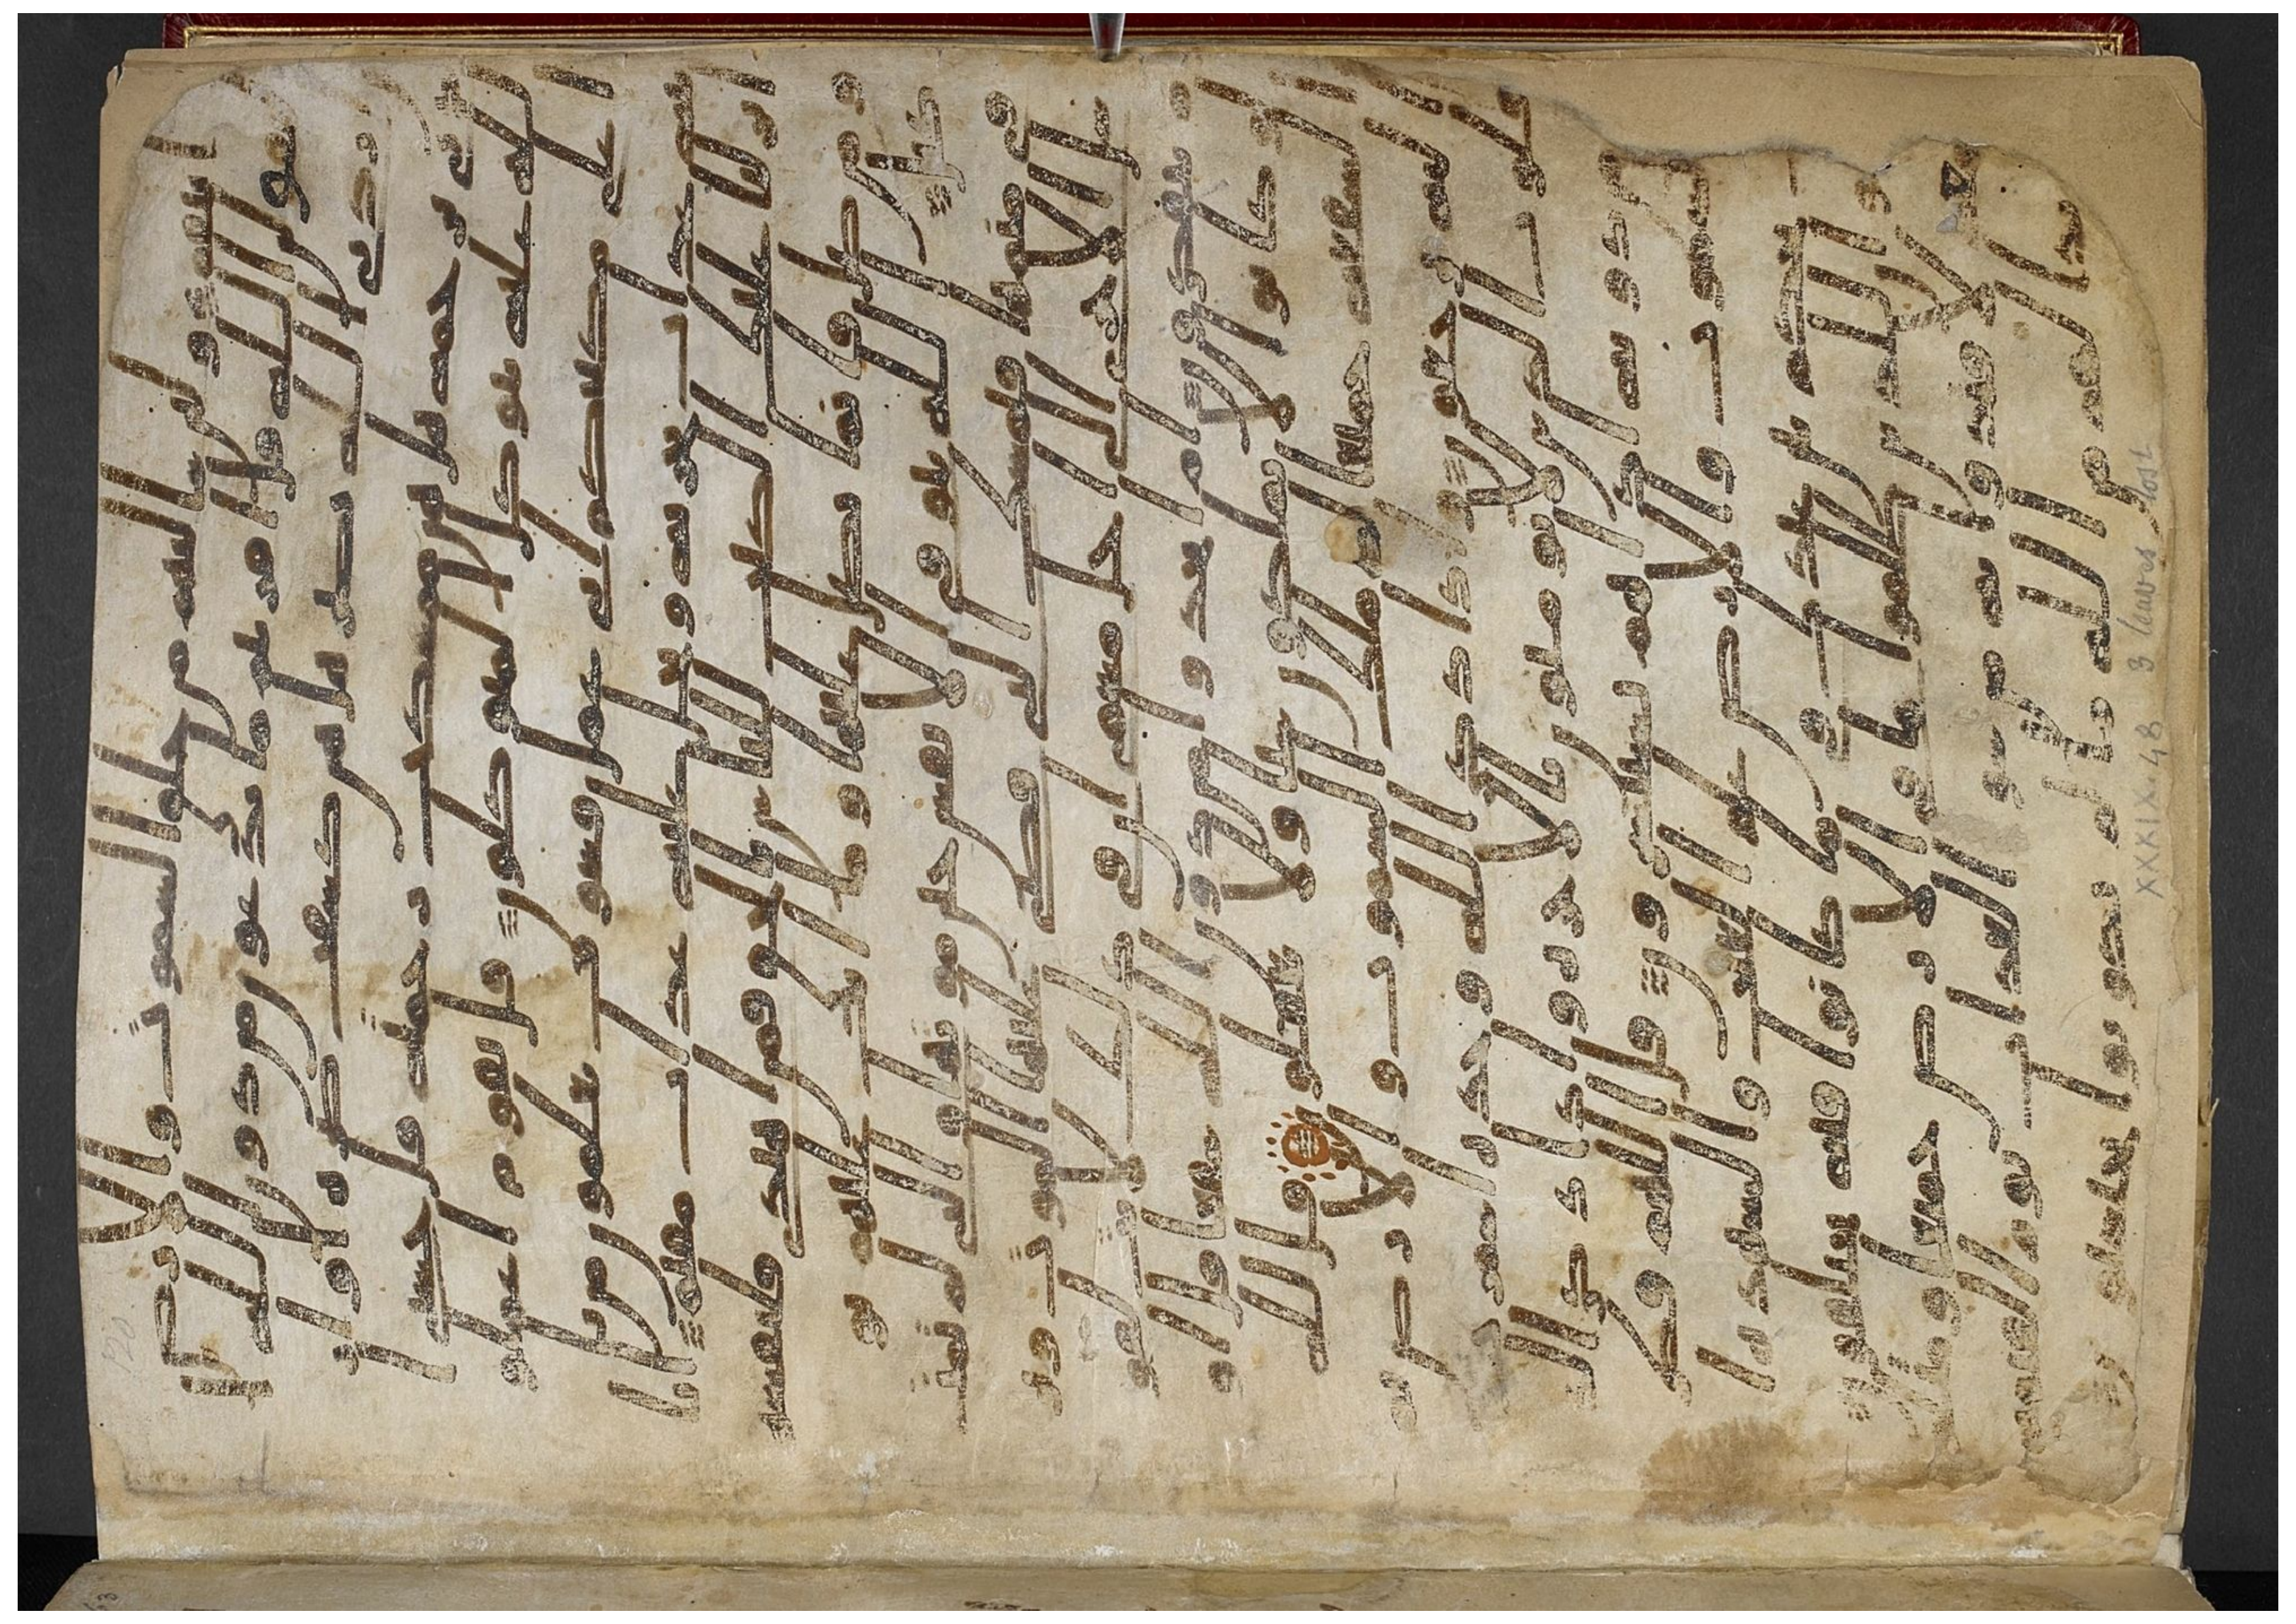 ولىن سالتهم من خلق السموت والارض
ليقولن الله قل افريتم ما تدعون من دون الله ا
ن ارادنى الله بضر هل هن كشفت ضره او ا
رادنى برحمة هل هن ممسكت رحمته قل حسبى ا
لله عليه يتوكل المتوكلون قل يقوم اعملوا
على مكانتكم انى عمل فسوف تعلمون من يا
تيه عذاب يخزيه ويحل عليه عذاب مقيم ا
نا انزلنا عليك الكتب للناس بالحق فمن اهتدى فلنفسه
ومن ضل فانما يضل عليها وما انت عليهم بو
كيل الله يتوفى الانفس حين موتها والتى لم تمت
فى منامها فيمسك التى قضى عليها الموت وير
سل الاخرى الى اجل مسمى ان فى ذلك لايت لقو
م يتفكرون ام اتخذوا من دون الله شفعا قل او
لو كانوا لا يملكون شيا ولا يعقلون قل لله
الشفعة جميعا له ملك السموت والارض ثم
اليه ترجعون واذا ذكر الله وحده اشمزت
قلوب الذين لا يومنون بالاخرة واذا ذكر الذ
ين من دونه اذا هم يستبشرون قل اللهم فطر
السموت والارض علم الغيب والشهدة ا
نت تحكم بين عبادك فى ما كانوا فيه يختلفون
ولو ان للذين ظلموا ما فى الارض جميعا ومثله
معه لافتدوا به من سو العذاب يوم القيمة
وبدا لهم من الله ما لم يكونوا يحتسبون
XXXIX. 48 3 leaves lost